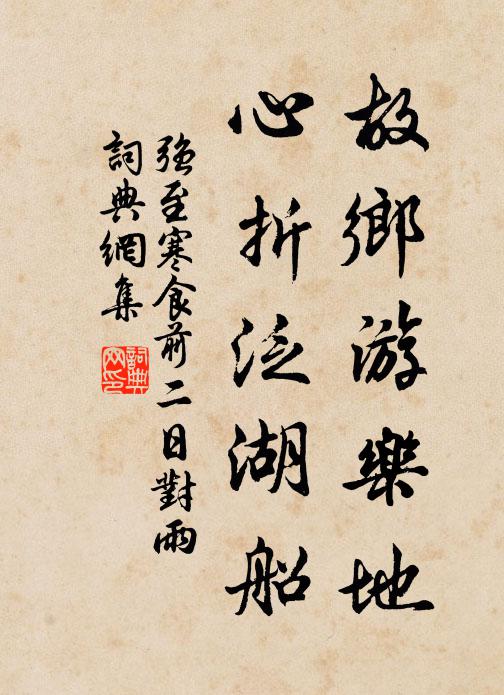 故鄉游樂地
心折泛湖船
強至寒食前二日對雨
詞典網集
詞典網印